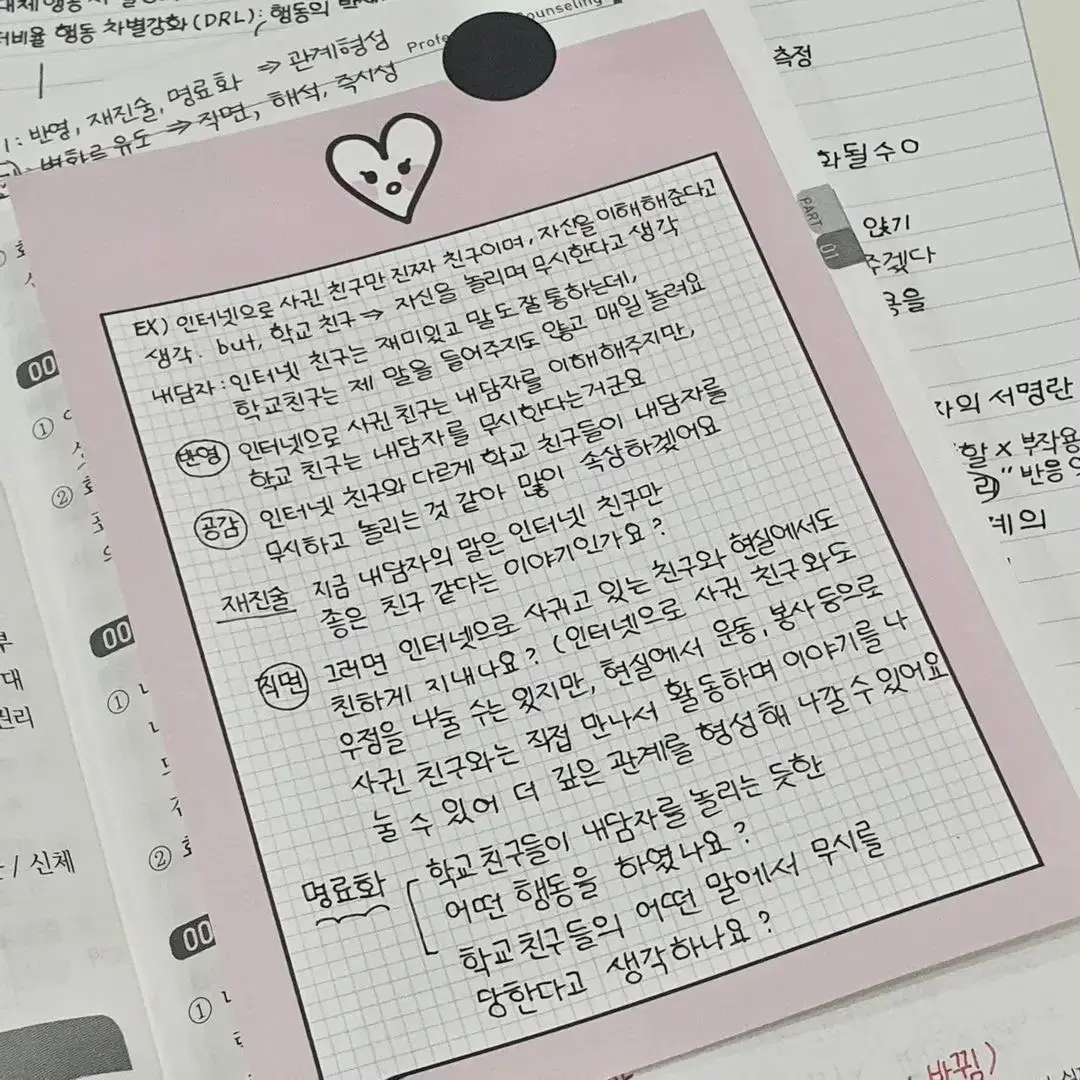 비율 행동 차별강화(DRL): 행동의
Profe
ounseling
반영, 재진술, 명료화 ⇒ 관계형성
유도 ⇒ 직면, 해석, 즉시성
EX) 인터넷으로 사귄 친구만 진짜 친구이며, 자신을 이해해준다고
생각. but, 학교 친구 ⇒ 자신을 놀리며 무시한다고 생각
내담자 : 인터넷 친구는 재미있고 말도 잘 통하는데,
학교친구는 제 말을 들어주지도 않고 매일 놀려요
반영 인터넷으로 사귄 친구는 내담자를 이해해주지만,
학교 친구는 내담자를 무시한다는거군요
공감 인터넷 친구와 다르게 학교 친구들이 내담자를
무시하고 놀리는 것 같아 많이 속상하겠어요
재진술 지금 내담자의 말은 인터넷 친구만
좋은 친구 같다는 이야기인가요?
직면 그러면 인터넷으로 사귀고 있는 친구와 현실에서도
친하게 지내나요? (인터넷으로 사귄 친구와도
우정을 나눌 수는 있지만, 현실에서 운동, 봉사 등으로
사귄 친구와는 직접 만나서 활동하며 이야기를 나
눌 수 있어 더 깊은 관계를 형성해 나갈 수 있어요
명료화 학교친구들이 내담자를 놀리는 듯한
어떤 행동을 하였나요?
학교친구들의 어떤 말에서 무시를
당한다고 생각하나요?
측정
화될 수 O
PART
01
앉기
주겠다
자의 서명란
할 X 부작용
리) " 반응
데의
00
①
②
00
①
②
00
①
대
원리
/ 신체
바뀜)